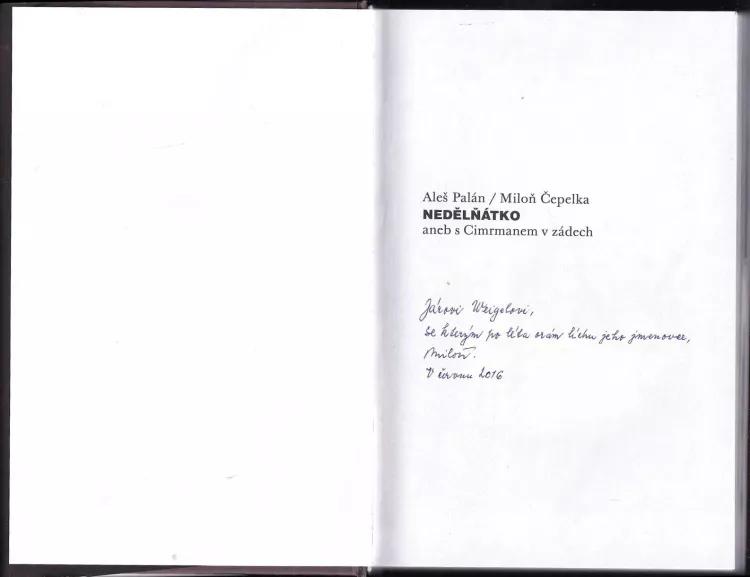 Aleš Palán / Miloň Čepelka
NEDĚLŇÁTKO
aneb s Cimrmanem v zádech
Járovi Weigelovi,
se kterým po léta orám líchu jeho jmenovce,
Miloň.
V červnu 2016